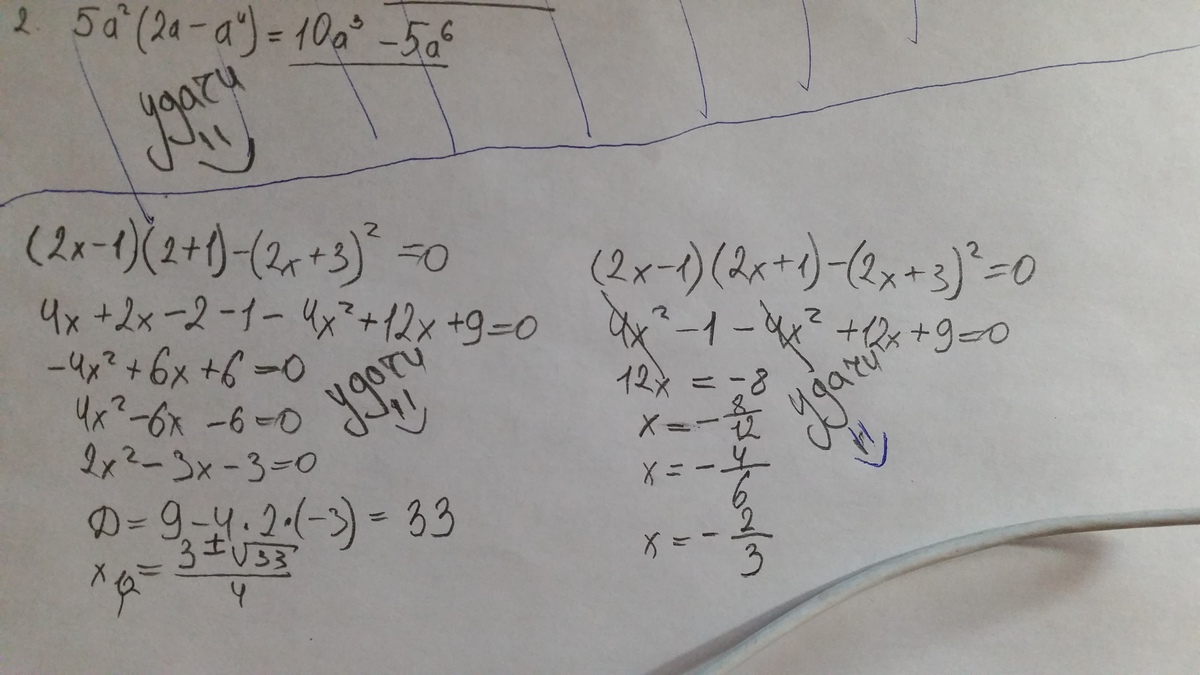 2. 5a²(2a-a⁴)=10a³-5a⁶
удачи
(2x-1)(2+1)-(2x+3)²=0
4x+2x-2-1-4x²+12x+9=0
-4x²+6x+6=0
удачи
4x²-6x-6=0
2x²-3x-3=0
D=9-4·2·(-3)=33
x₁,₂=(3±√33)/4
(2x-1)(2x+1)-(2x+3)²=0
4x²-1-4x²+12x+9=0
12x=-8
удачи
x=-8/12
x=-4/6
x=-2/3